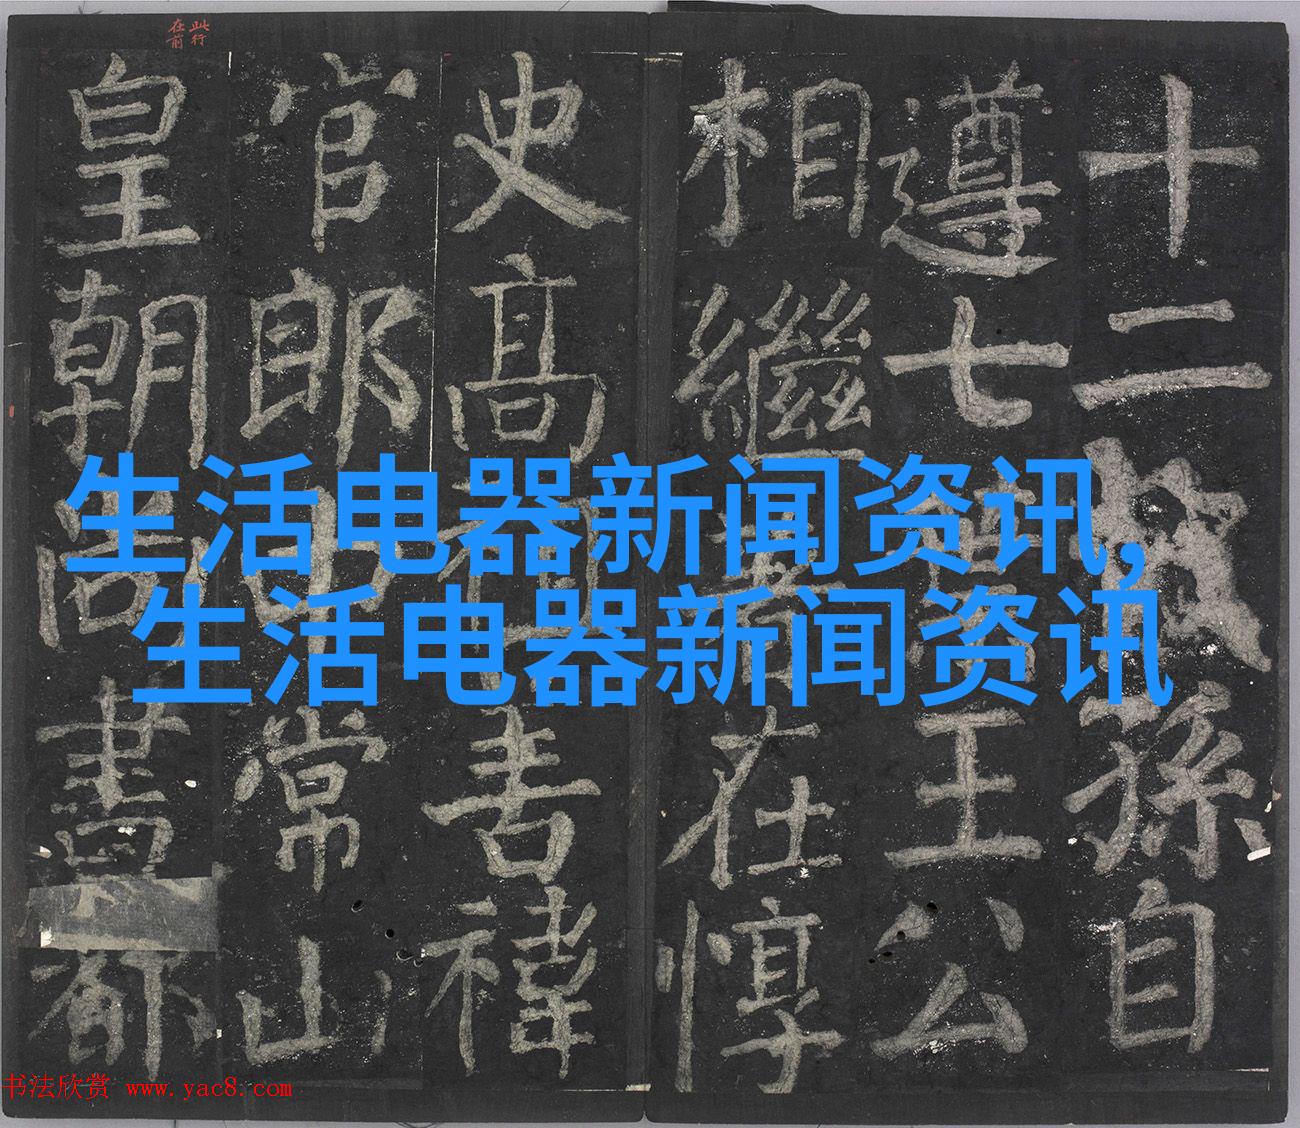 此行
在前
十二孫自
遵七王公
相繼在惇
史高禕
官郎中常山
皇朝尚書都
生活电器新闻资讯,
生活电器新闻资讯
书法欣赏 www.yac8.com